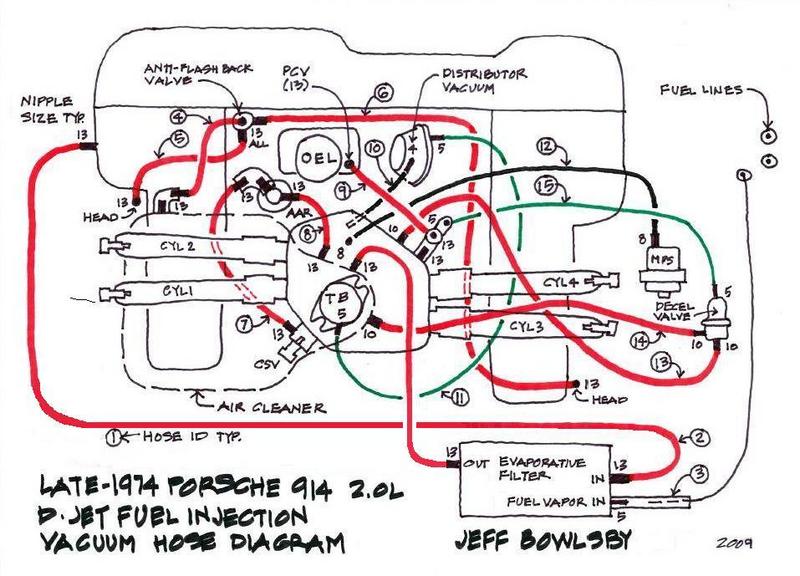 ANTI-FLASHBACK
VALVE
PCV
(13)
6
DISTRIBUTOR
VACUUM
FUEL LINES
NIPPLE
SIZE TYP.
13
4
5
13
ALL
OEL
10
4
5
12
15
9
13
HEAD
13
13
13
AAR
8
10
5
13
8
13
13
8
MPS
CYL 2
CYL 1
CYL 4
CYL 3
TB
5
10
DECEL
VALVE
5
10
10
7
13
CSV
14
13
13
HEAD
11
AIR CLEANER
1
HOSE ID TYP.
2
13
OUT
EVAPORATIVE
FILTER
13
IN
3
FUEL VAPOR IN
5
LATE-1974 PORSCHE 914 2.0L
D-JET FUEL INJECTION
VACUUM HOSE DIAGRAM
JEFF BOWLSBY
2009